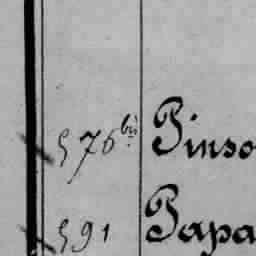 576 bis Pinso
591 Papa